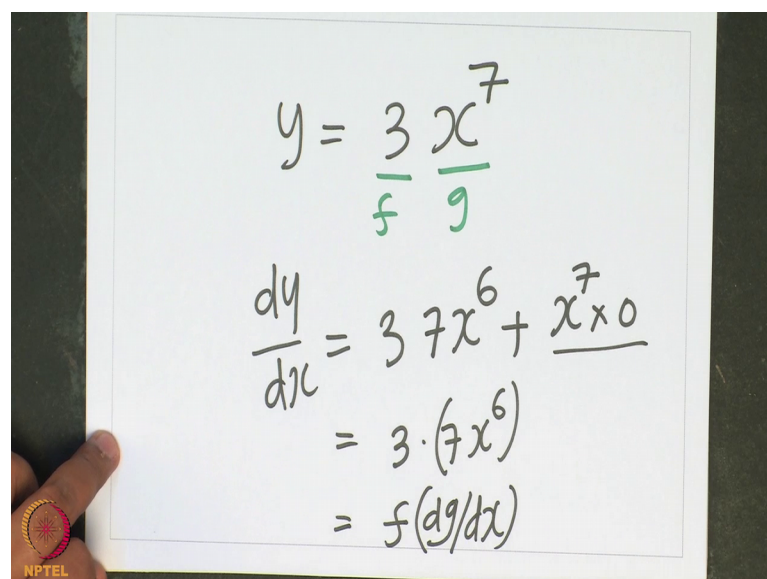 y = 3 x⁷
f g
dy/dx = 3 7x⁶ + x⁷ × 0
= 3 · (7x⁶)
= f(dg/dx)
NPTEL